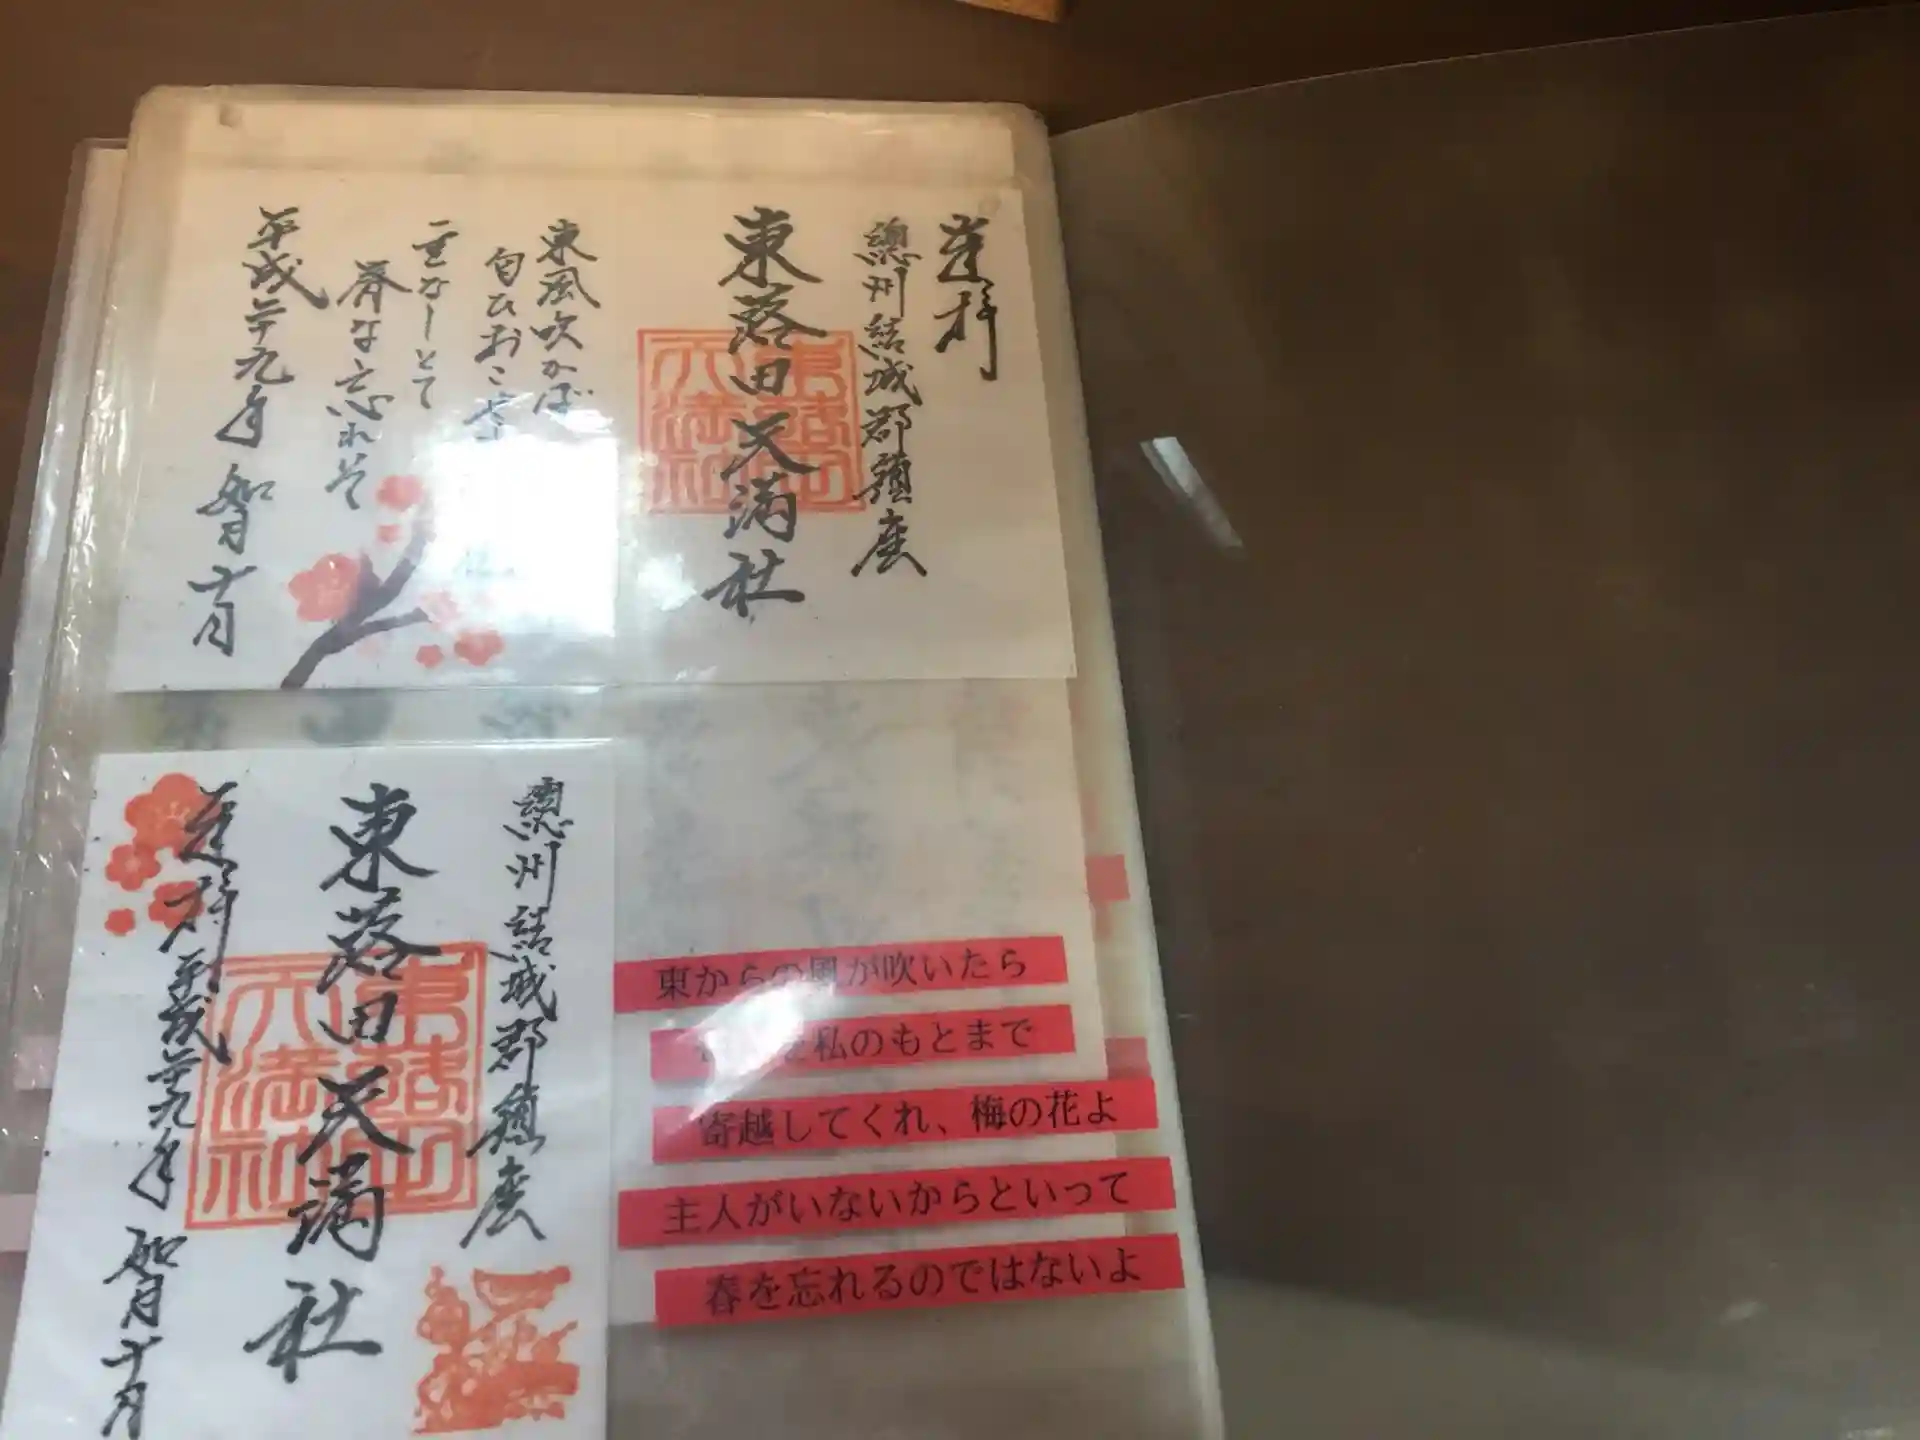 遥拝
總州結城郡鎮座
東蕗田天満社
東風吹かば
匂ひおこせ
主なしとて
春な忘れそ
平成二十九年 如月 十月
總州結城郡鎮座
東蕗田天満社
遥拝
平成二十九年 如月 十月
東蕗田
天満社
東からの風が吹いたら
私のもとまで
寄越してくれ、梅の花よ
主人がいないからといって
春を忘れるのではないよ